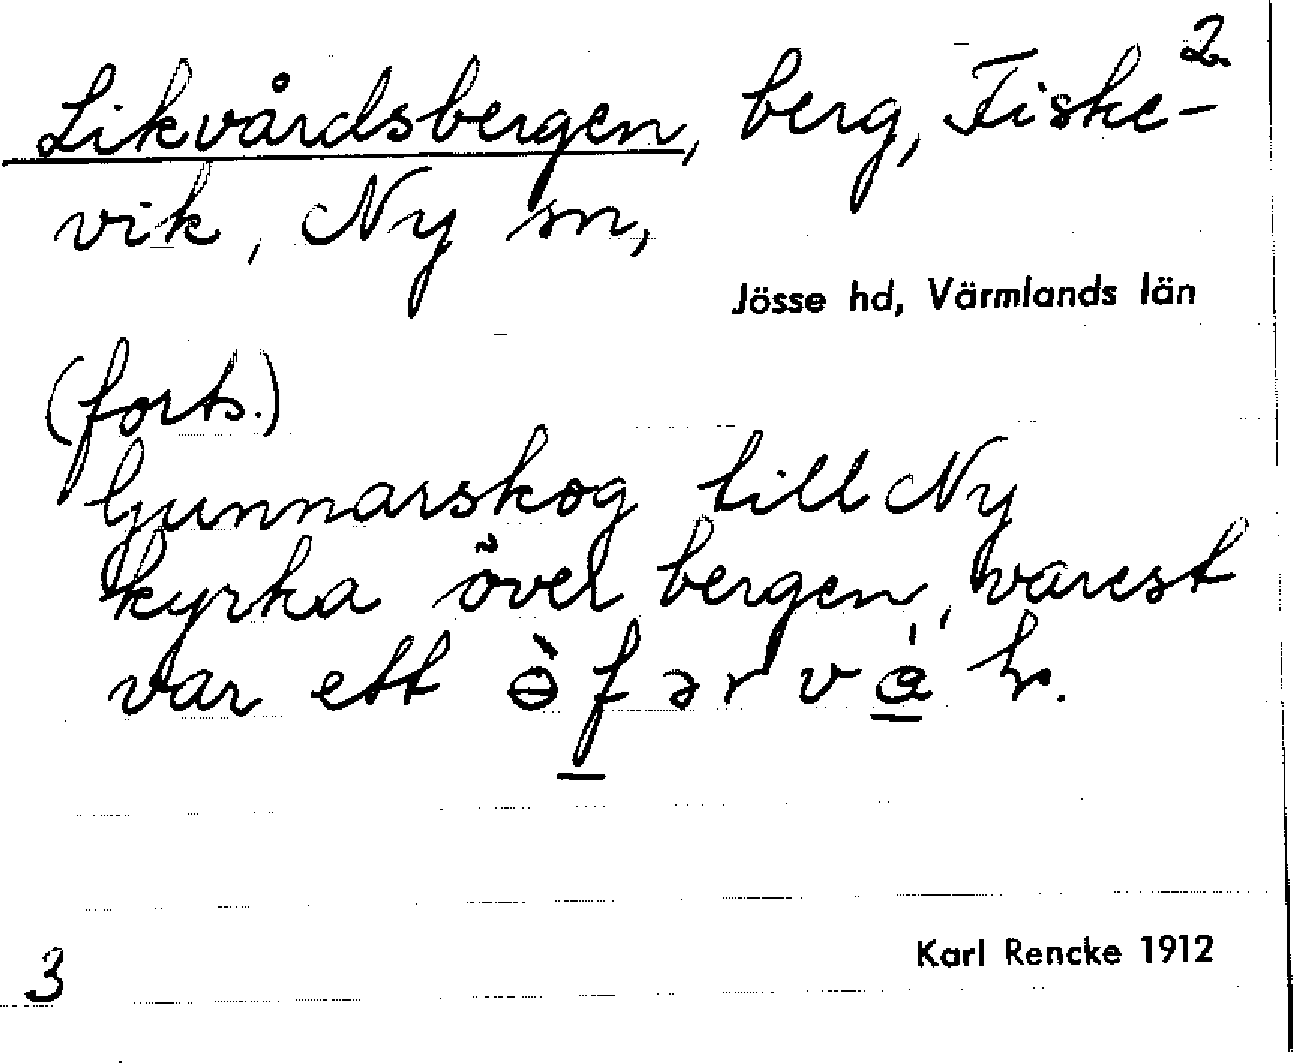 2.
Likvårdsbergen, berg, Fiske-
vik, Ny sn,
Jösse hd, Värmlands län
(forts.)
Gunnarskog till Ny
kyrka över bergen, varest
var ett
Karl Rencke 1912
3